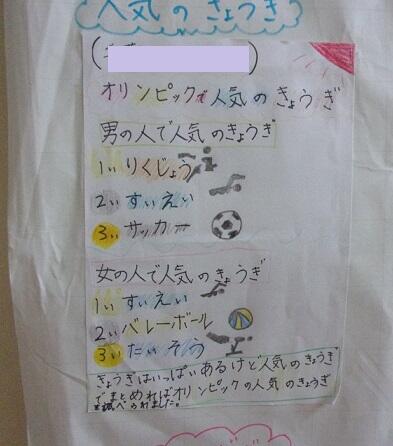 人気のきょうぎ
オリンピックで人気のきょうぎ
男の人で人気のきょうぎ
1いりくじょう
2いすいえい
3いサッカー
女の人で人気のきょうぎ
1いすいえい
2いバレーボール
3いたいそう
きょうぎはいっぱいあるけど人気のきょうぎ
でまとめればオリンピックの人気のきょうぎ